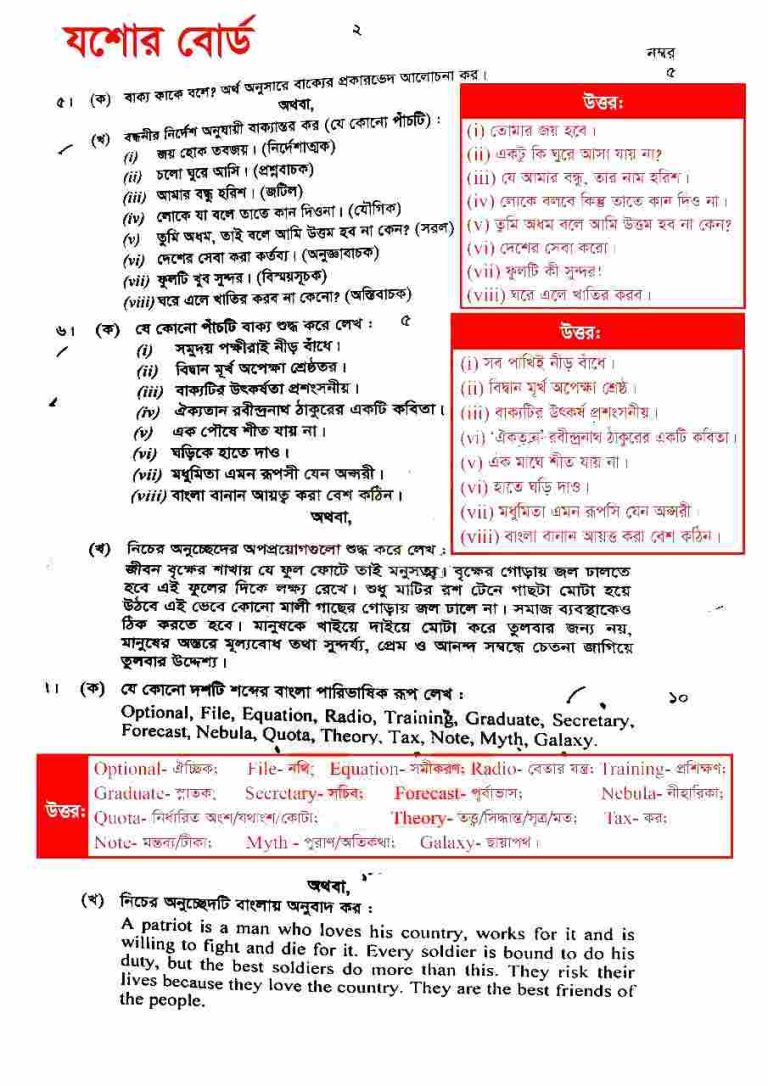 যশোর বোর্ড
২
নম্বর
৫। (ক) বাক্য কাকে বলে? অর্থ অনুসারে বাক্যের প্রকারভেদ আলোচনা কর। ৫
অথবা,
(খ) বন্ধনীর নির্দেশ অনুযায়ী বাক্যান্তর কর (যে কোনো পাঁচটি) :
(i) জয় হোক তবজয়। (নির্দেশাত্মক)
(ii) চলো ঘুরে আসি। (প্রশ্নবাচক)
(iii) আমার বন্ধু হরিশ। (জটিল)
(iv) লোকে যা বলে তাতে কান দিওনা। (যৌগিক)
(v) তুমি অধম, তাই বলে আমি উত্তম হব না কেন? (সরল)
(vi) দেশের সেবা করা কর্তব্য। (অনুজ্ঞাবাচক)
(vii) ফুলটি খুব সুন্দর। (বিস্ময়সূচক)
(viii) ঘরে এলে খাতির করব না কেনো? (অস্তিবাচক)
উত্তর:
(i) তোমার জয় হবে।
(ii) একটু কি ঘুরে আসা যায় না?
(iii) যে আমার বন্ধু, তার নাম হরিশ।
(iv) লোকে বলবে কিন্তু তাতে কান দিও না।
(v) তুমি অধম বলে আমি উত্তম হব না কেন?
(vi) দেশের সেবা করো।
(vii) ফুলটি কী সুন্দর!
(viii) ঘরে এলে খাতির করব।
৬। (ক) যে কোনো পাঁচটি বাক্য শুদ্ধ করে লেখ : ৫
(i) সমুদয় পক্ষীরাই নীড় বাঁধে।
(ii) বিদ্বান মূর্খ অপেক্ষা শ্রেষ্ঠতর।
(iii) বাক্যটির উৎকর্ষতা প্রশংসনীয়।
(iv) ঐক্যতান রবীন্দ্রনাথ ঠাকুরের একটি কবিতা।
(v) এক পৌষে শীত যায় না।
(vi) ঘড়িকে হাতে দাও।
(vii) মধুমিতা এমন রূপসী যেন অপ্সরী।
(viii) বাংলা বানান আয়ত্ব করা বেশ কঠিন।
অথবা,
উত্তর:
(i) সব পাখিই নীড় বাঁধে।
(ii) বিদ্বান মূর্খ অপেক্ষা শ্রেষ্ঠ।
(iii) বাক্যটির উৎকর্ষ প্রশংসনীয়।
(vi) 'ঐকতান' রবীন্দ্রনাথ ঠাকুরের একটি কবিতা।
(v) এক মাঘে শীত যায় না।
(vi) হাতে ঘড়ি দাও।
(vii) মধুমিতা এমন রূপসি যেন অপ্সরী।
(viii) বাংলা বানান আয়ত্ত করা বেশ কঠিন।
(খ) নিচের অনুচ্ছেদের অপপ্রয়োগগুলো শুদ্ধ করে লেখ :
জীবন বৃক্ষের শাখায় যে ফুল ফোটে তাই মনুসত্ত্ব। বৃক্ষের গোড়ায় জল ঢালতে
হবে এই ফুলের দিকে লক্ষ্য রেখে। শুধু মাটির রশ টেনে গাছটা মোটা হয়ে
উঠবে এই ভেবে কোনো মালী গাছের গোড়ায় জল ঢালে না। সমাজ ব্যবস্থাকেও
ঠিক করতে হবে। মানুষকে খাইয়ে দাইয়ে মোটা করে তুলবার জন্য নয়,
মানুষের অন্তরে মূল্যবোধ তথা সুন্দর্য্য, প্রেম ও আনন্দ সম্বন্ধে চেতনা জাগিয়ে
তুলবার উদ্দেশ্য।
(ক) যে কোনো দশটি শব্দের বাংলা পারিভাষিক রূপ লেখ : ১০
Optional, File, Equation, Radio, Training, Graduate, Secretary,
Forecast, Nebula, Quota, Theory, Tax, Note, Myth, Galaxy.
উত্তর:
Optional- ঐচ্ছিক; File- নথি; Equation- সমীকরণ; Radio- বেতার যন্ত্র; Training- প্রশিক্ষণ;
Graduate- স্নাতক; Secretary- সচিব; Forecast- পূর্বাভাস; Nebula- নীহারিকা;
Quota- নির্ধারিত অংশ/যথাংশ/কোটা; Theory- তত্ত্ব/সিদ্ধান্ত/সূত্র/মত; Tax- কর;
Note- মন্তব্য/টীকা; Myth - পুরাণ/অতিকথা; Galaxy- ছায়াপথ।
অথবা,
(খ) নিচের অনুচ্ছেদটি বাংলায় অনুবাদ কর :
A patriot is a man who loves his country, works for it and is
willing to fight and die for it. Every soldier is bound to do his
duty, but the best soldiers do more than this. They risk their
lives because they love the country. They are the best friends of
the people.